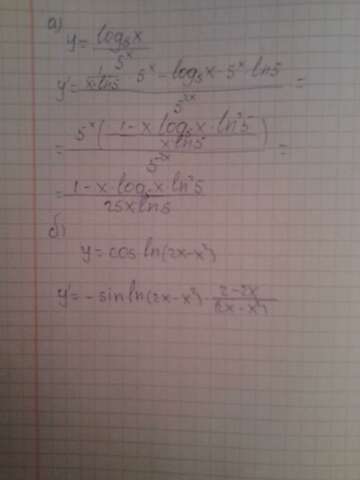 а)
y = log₅x / 5ˣ
y' = (1/(x·ln5) · 5ˣ − log₅x · 5ˣ · ln5) / 5²ˣ =
= 5ˣ ((1 − x log₅x · ln²5) / (x ln5)) / 5²ˣ =
= (1 − x · log₅x ln²5) / (25x ln5)
б)
y = cos ln(2x−x²)
y' = − sin ln(2x−x²) · (2−2x) / (2x−x²)